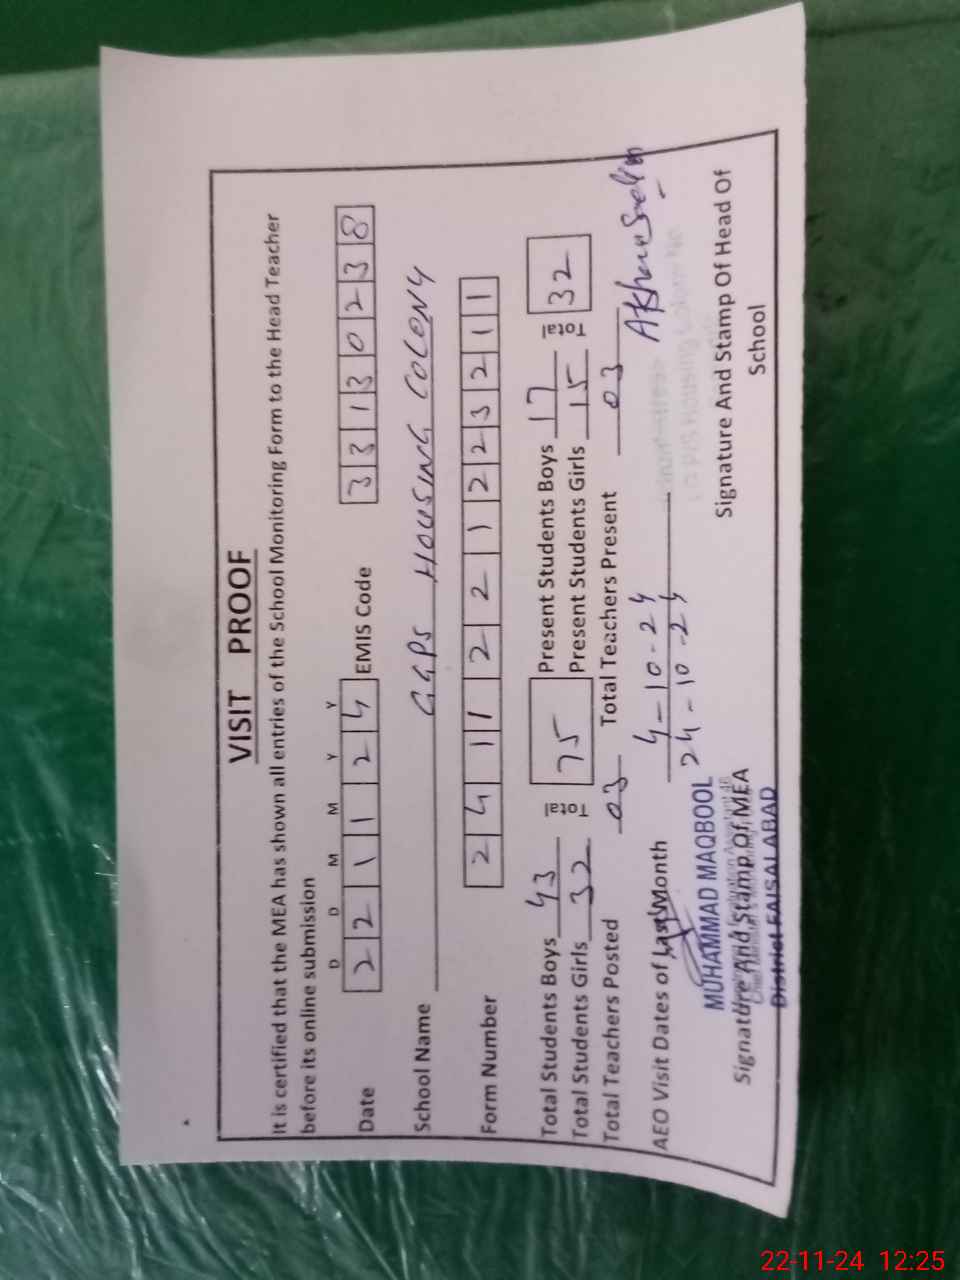 VISIT PROOF
It is certified that the MEA has shown all entries of the School Monitoring Form to the Head Teacher
before its online submission
D D M M Y Y
Date 2 2 1 1 2 4 EMIS Code 3 3 1 3 0 2 3 8
School Name GGPS HOUSING COLONY
Form Number 2 4 1 1 2 2 1 2 2 3 2 1 1
Total Students Boys 43 Total 75 Present Students Boys 17 Total 32
Total Students Girls 32 Present Students Girls 15
Total Teachers Posted 03 Total Teachers Present 03
AEO Visit Dates of Last Month 4-10-24
24-10-24
MUHAMMAD MAQBOOL
Signature And Stamp Of MEA
District FAISALABAD
Signature And Stamp Of Head Of
School
22-11-24 12:25